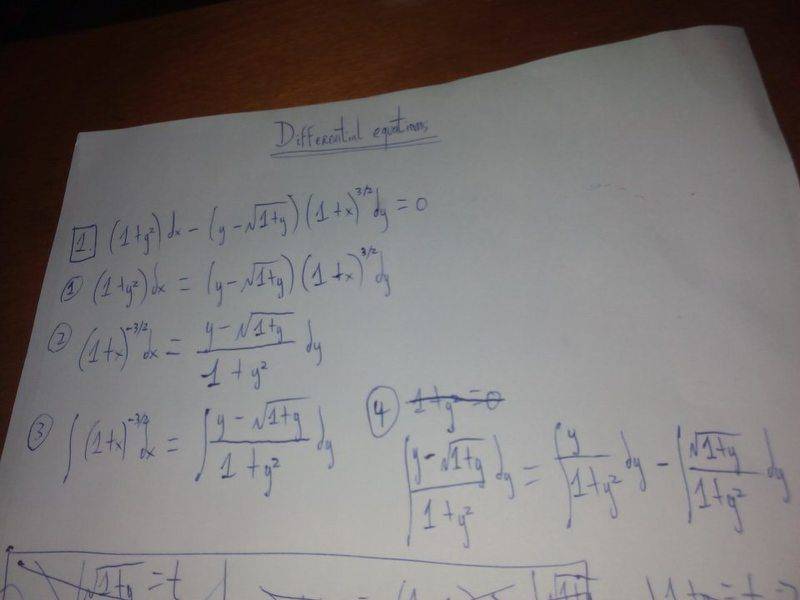 Differential equations
1. (1+y²)dx - (y-√1+y)(1+x)^3/2 dy = 0
① (1+y²)dx = (y-√1+y)(1+x)^3/2 dy
② (1+x)^-3/2 dx = (y-√1+y)/(1+y²) dy
③ ∫(1+x)^-3/2 dx = ∫(y-√1+y)/(1+y²) dy
④ 1+y²=0
∫(y-√1+y)/(1+y²) dy = ∫y/(1+y²) dy - ∫√1+y/(1+y²) dy
√1+y = t